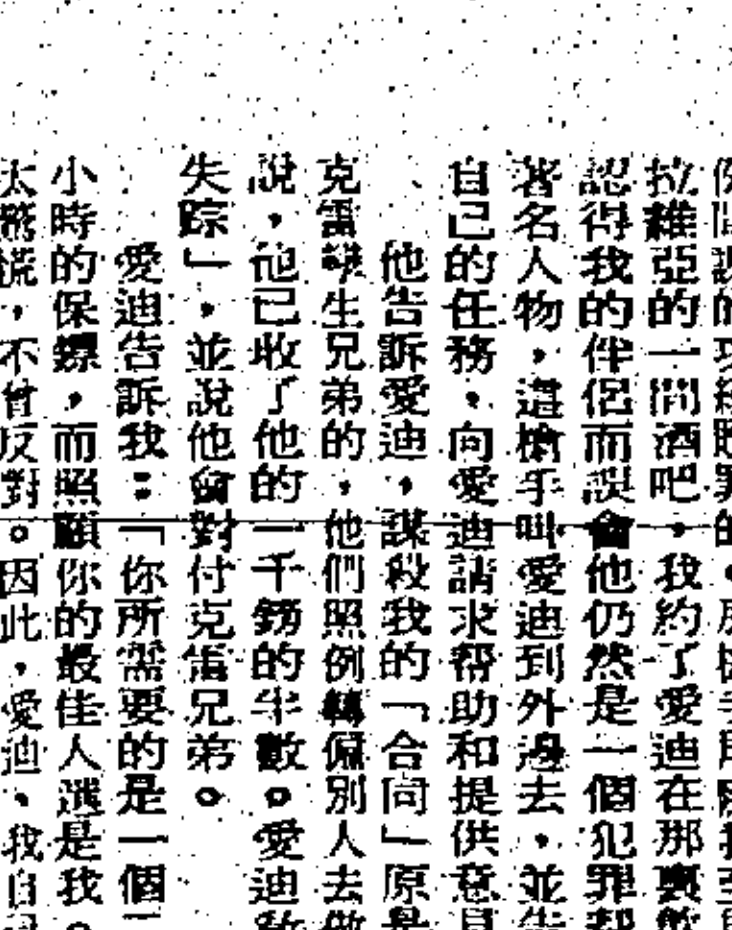 拉維亞的一間酒吧，我約了愛迪在那裏飲
認得我的伴侶而誤會他仍然是一個犯罪
著名人物，這槍手叫愛迪到外邊去，並告
自己的任務，向愛迪請求帮助和提供意見
他告訴愛迪，謀殺我的「合同」原是
克雷孿生兄弟的，他們照例轉僱別人去做
說，他已收了他的一千鎊的半數。愛迪
失踪」，並說他會對付克雷兄弟。
愛迪告訴我：「你所需要的是一個
小時的保鏢，而照顧你的最佳人選是我。
太驚慌，不曾反對。因此，愛迪、我自